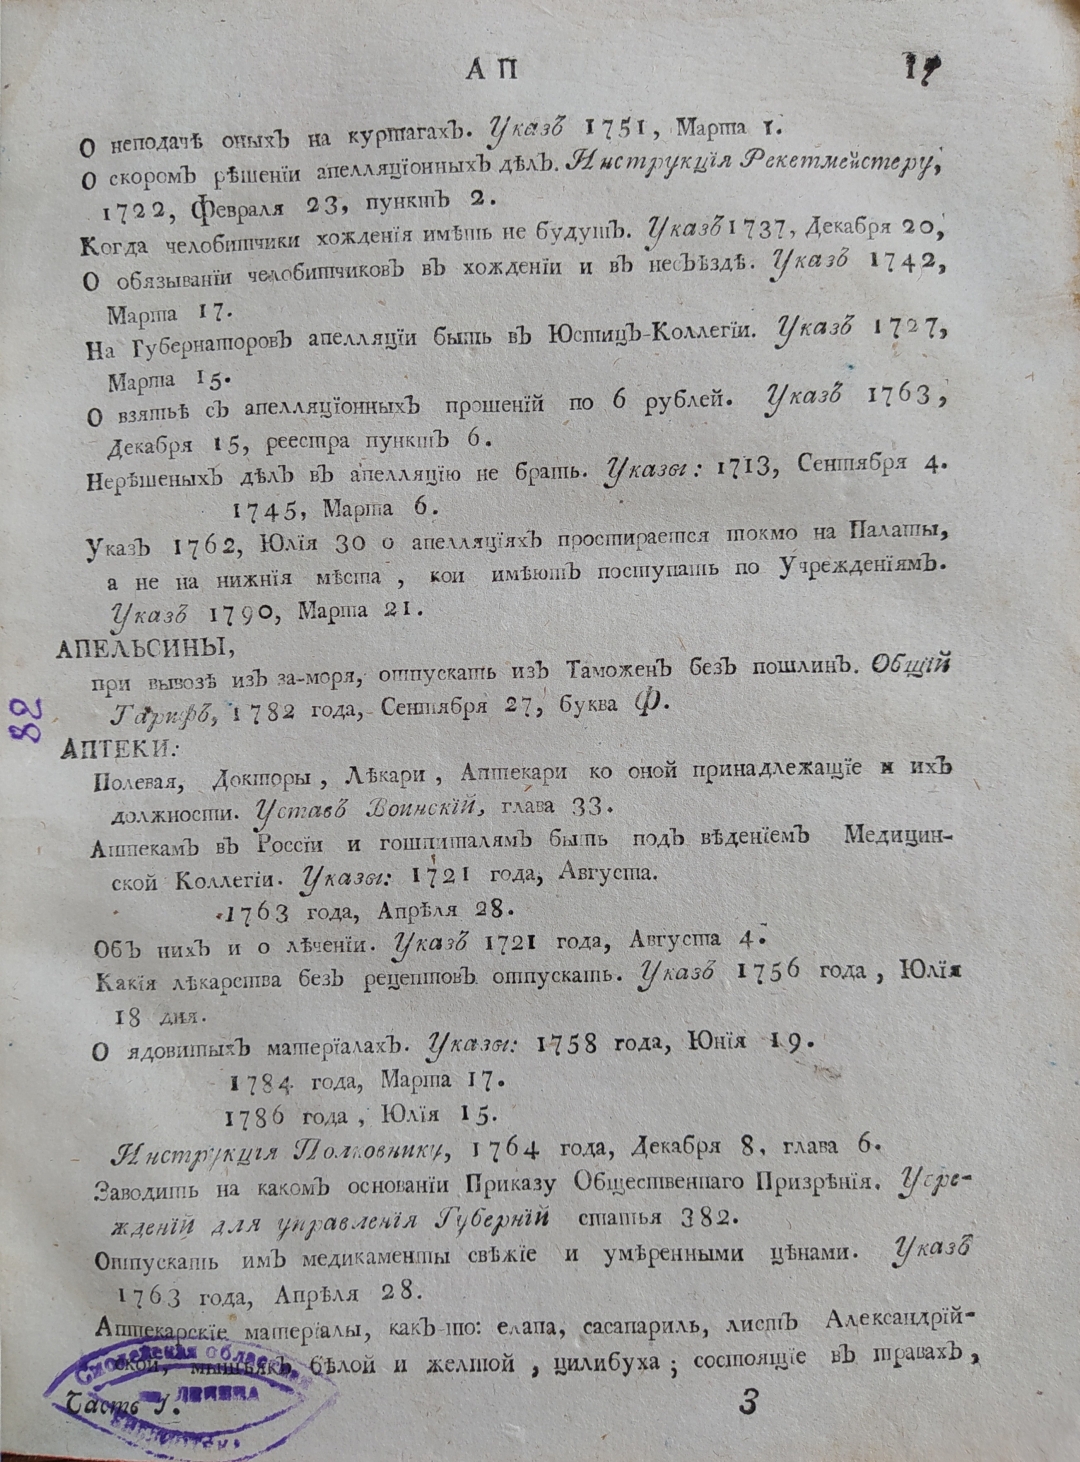 АП 17
О неподачѣ оныхъ на куртагахъ. Указъ 1751, Марта 1.
О скоромъ рѣшенїи апелляцїонныхъ дѣлъ. Инструкцїя Рекетмейстеру,
1722, Февраля 23, пунктъ 2.
Когда челобитчики хожденїя имѣть не будутъ. Указъ 1737, Декабря 20,
О обязыванїи челобитчиковъ въ хожденїи и въ несъѣздѣ. Указъ 1742,
Марта 17.
На Губернаторовъ апелляцїи быть въ Юстицъ-Коллегїи. Указъ 1727,
Марта 15.
О взятьѣ съ апелляцїонныхъ прошенїй по 6 рублей. Указъ 1763,
Декабря 15, реестра пунктъ 6.
Нерѣшеныхъ дѣлъ въ апелляцїю не брать. Указы: 1713, Сентября 4.
1745, Марта 6.
Указъ 1762, Юлїя 30 о апелляцїяхъ простирается токмо на Палаты,
а не на нижнїя мѣста, кои имѣютъ поступать по Учрежденїямъ.
Указъ 1790, Марта 21.
АПЕЛЬСИНЫ,
при вывозѣ изъ за-моря, отпускать изъ Таможенъ безъ пошлинъ. Общїй
Тарифъ, 1782 года, Сентября 27, буква Ф.
82
АПТЕКИ:
Полевая, Докторы, Лѣкари, Аптекари ко оной принадлежащїе и ихъ
должности. Уставъ Воинскїй, глава 33.
Аптекамъ въ Россїи и гошпиталямъ быть подъ вѣденїемъ Медицин-
ской Коллегїи. Указы: 1721 года, Августа.
1763 года, Апрѣля 28.
Объ нихъ и о лѣченїи. Указъ 1721 года, Августа 4.
Какїя лѣкарства безъ рецептовъ отпускать. Указъ 1756 года, Юлїя
18 дня.
О ядовитыхъ матерїалахъ. Указы: 1758 года, Юнїя 19.
1784 года, Марта 17.
1786 года, Юлїя 15.
Инструкцїя Полковнику, 1764 года, Декабря 8, глава 6.
Заводить на какомъ основанїи Приказу Общественнаго Призрѣнїя. Учре-
жденїй для управленїя Губернїй статья 382.
Отпускать имъ медикаменты свѣжїе и умѣренными цѣнами. Указъ
1763 года, Апрѣля 28.
Аптекарскїе матерїалы, какъ-то: елапа, сасапариль, листъ Александрїй-
ской, мышьякъ бѣлой и желтой, цилибуха; состоящїе въ травахъ,
Часть I. 3
Смоленская областная
ЛЕНИНА
Библиотека